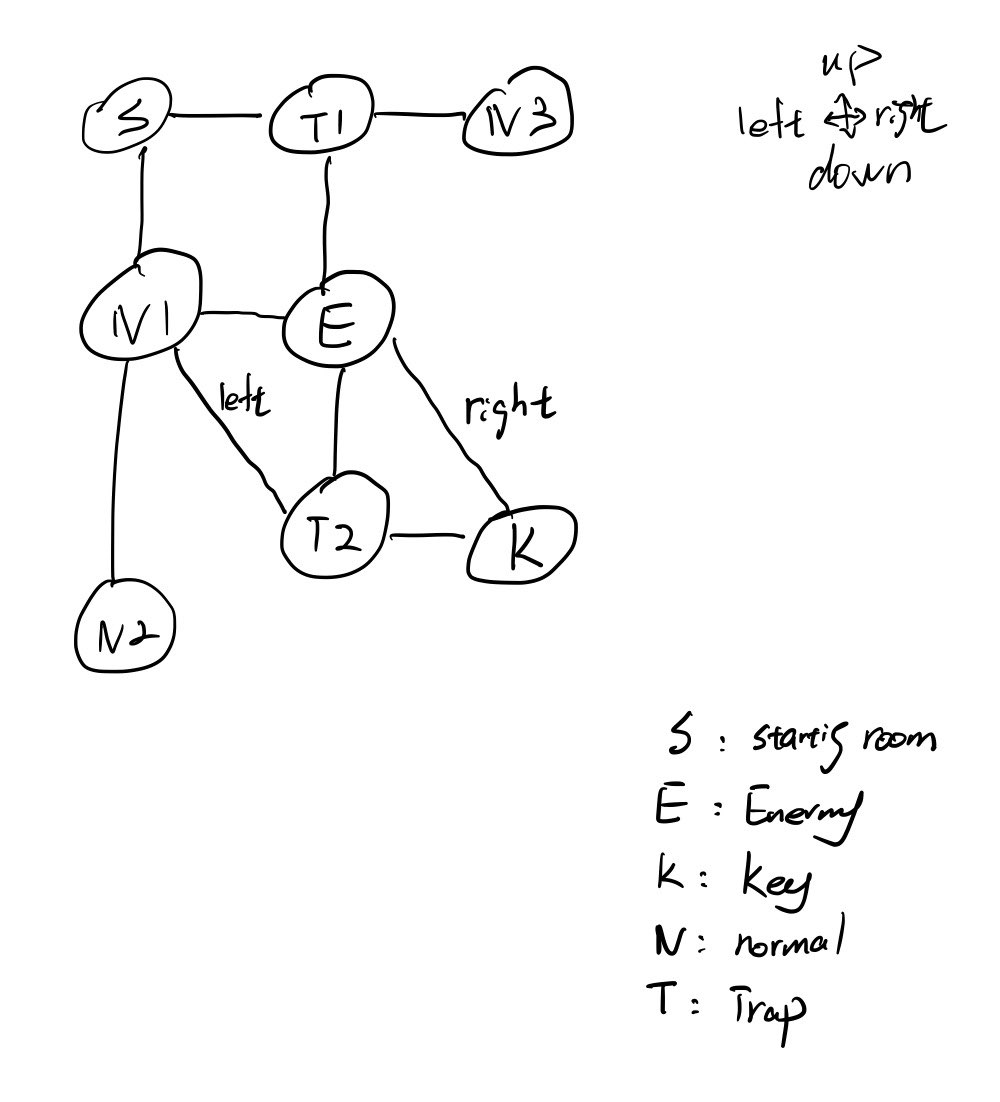 S T1 N3
up
left right
down
N1 E
left right
T2 K
N2
S : startig room
E : Enermy
K : key
N : normal
T : Trap